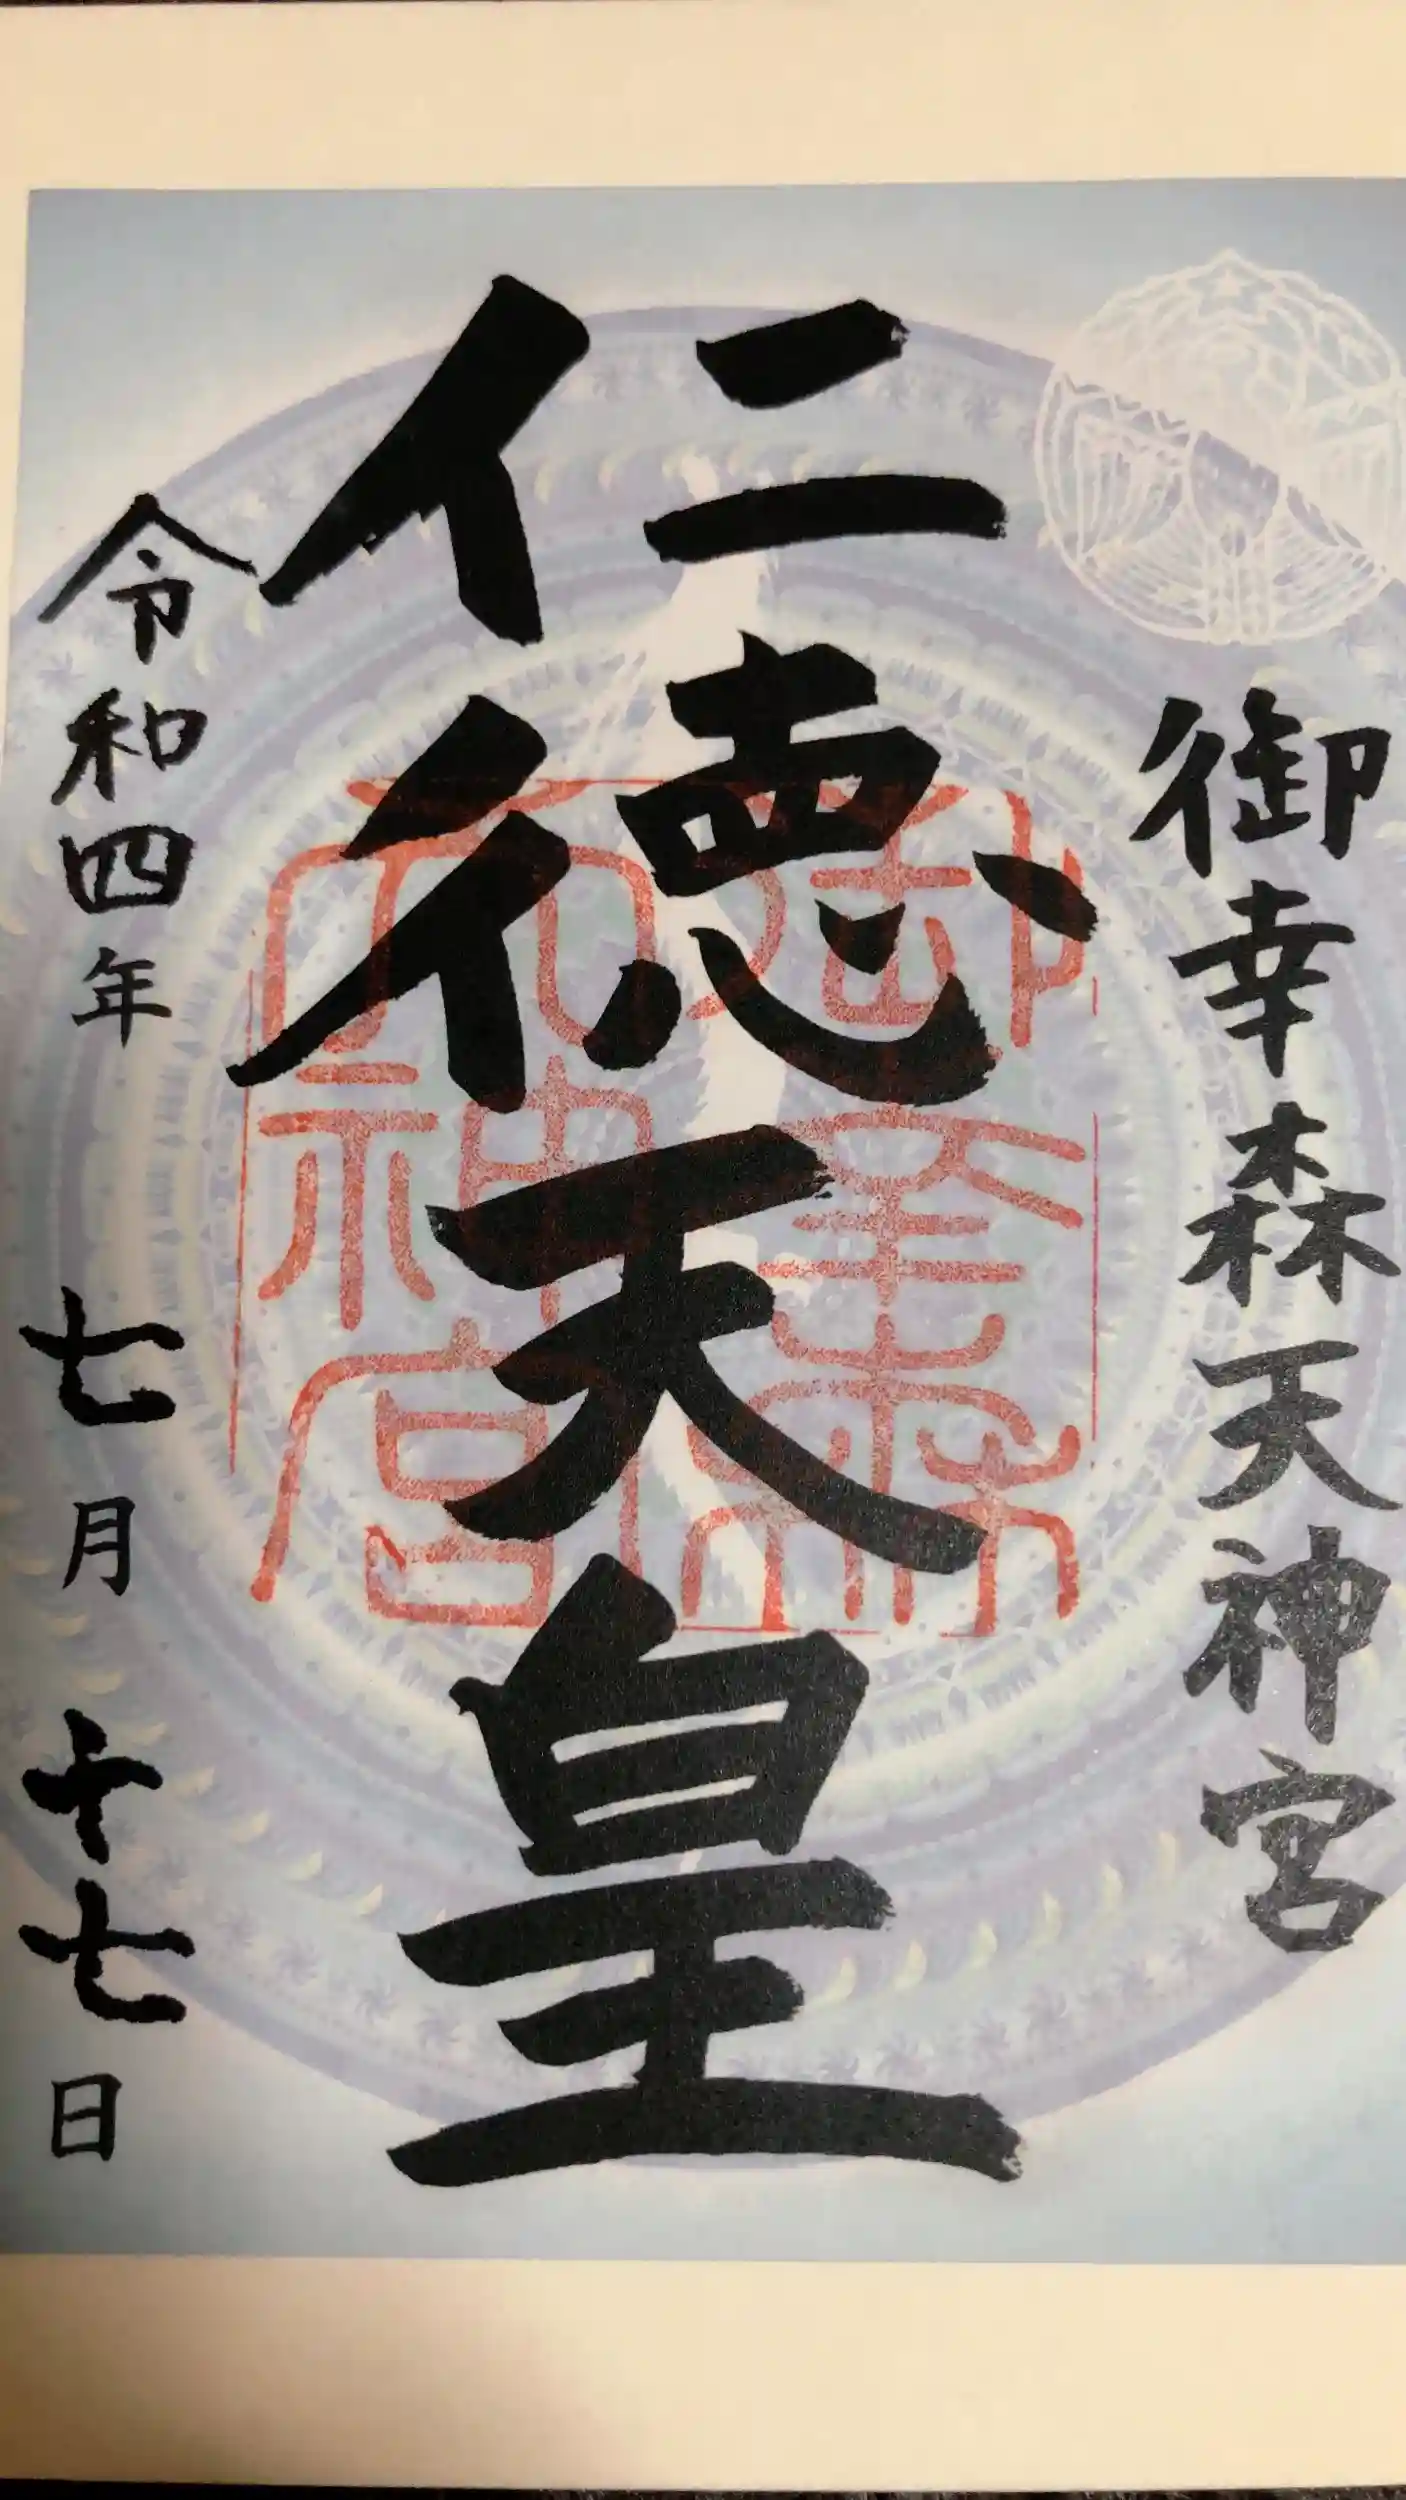 御幸森天神宮
仁徳天皇
御幸森天神宮
令和四年 七月 十七日